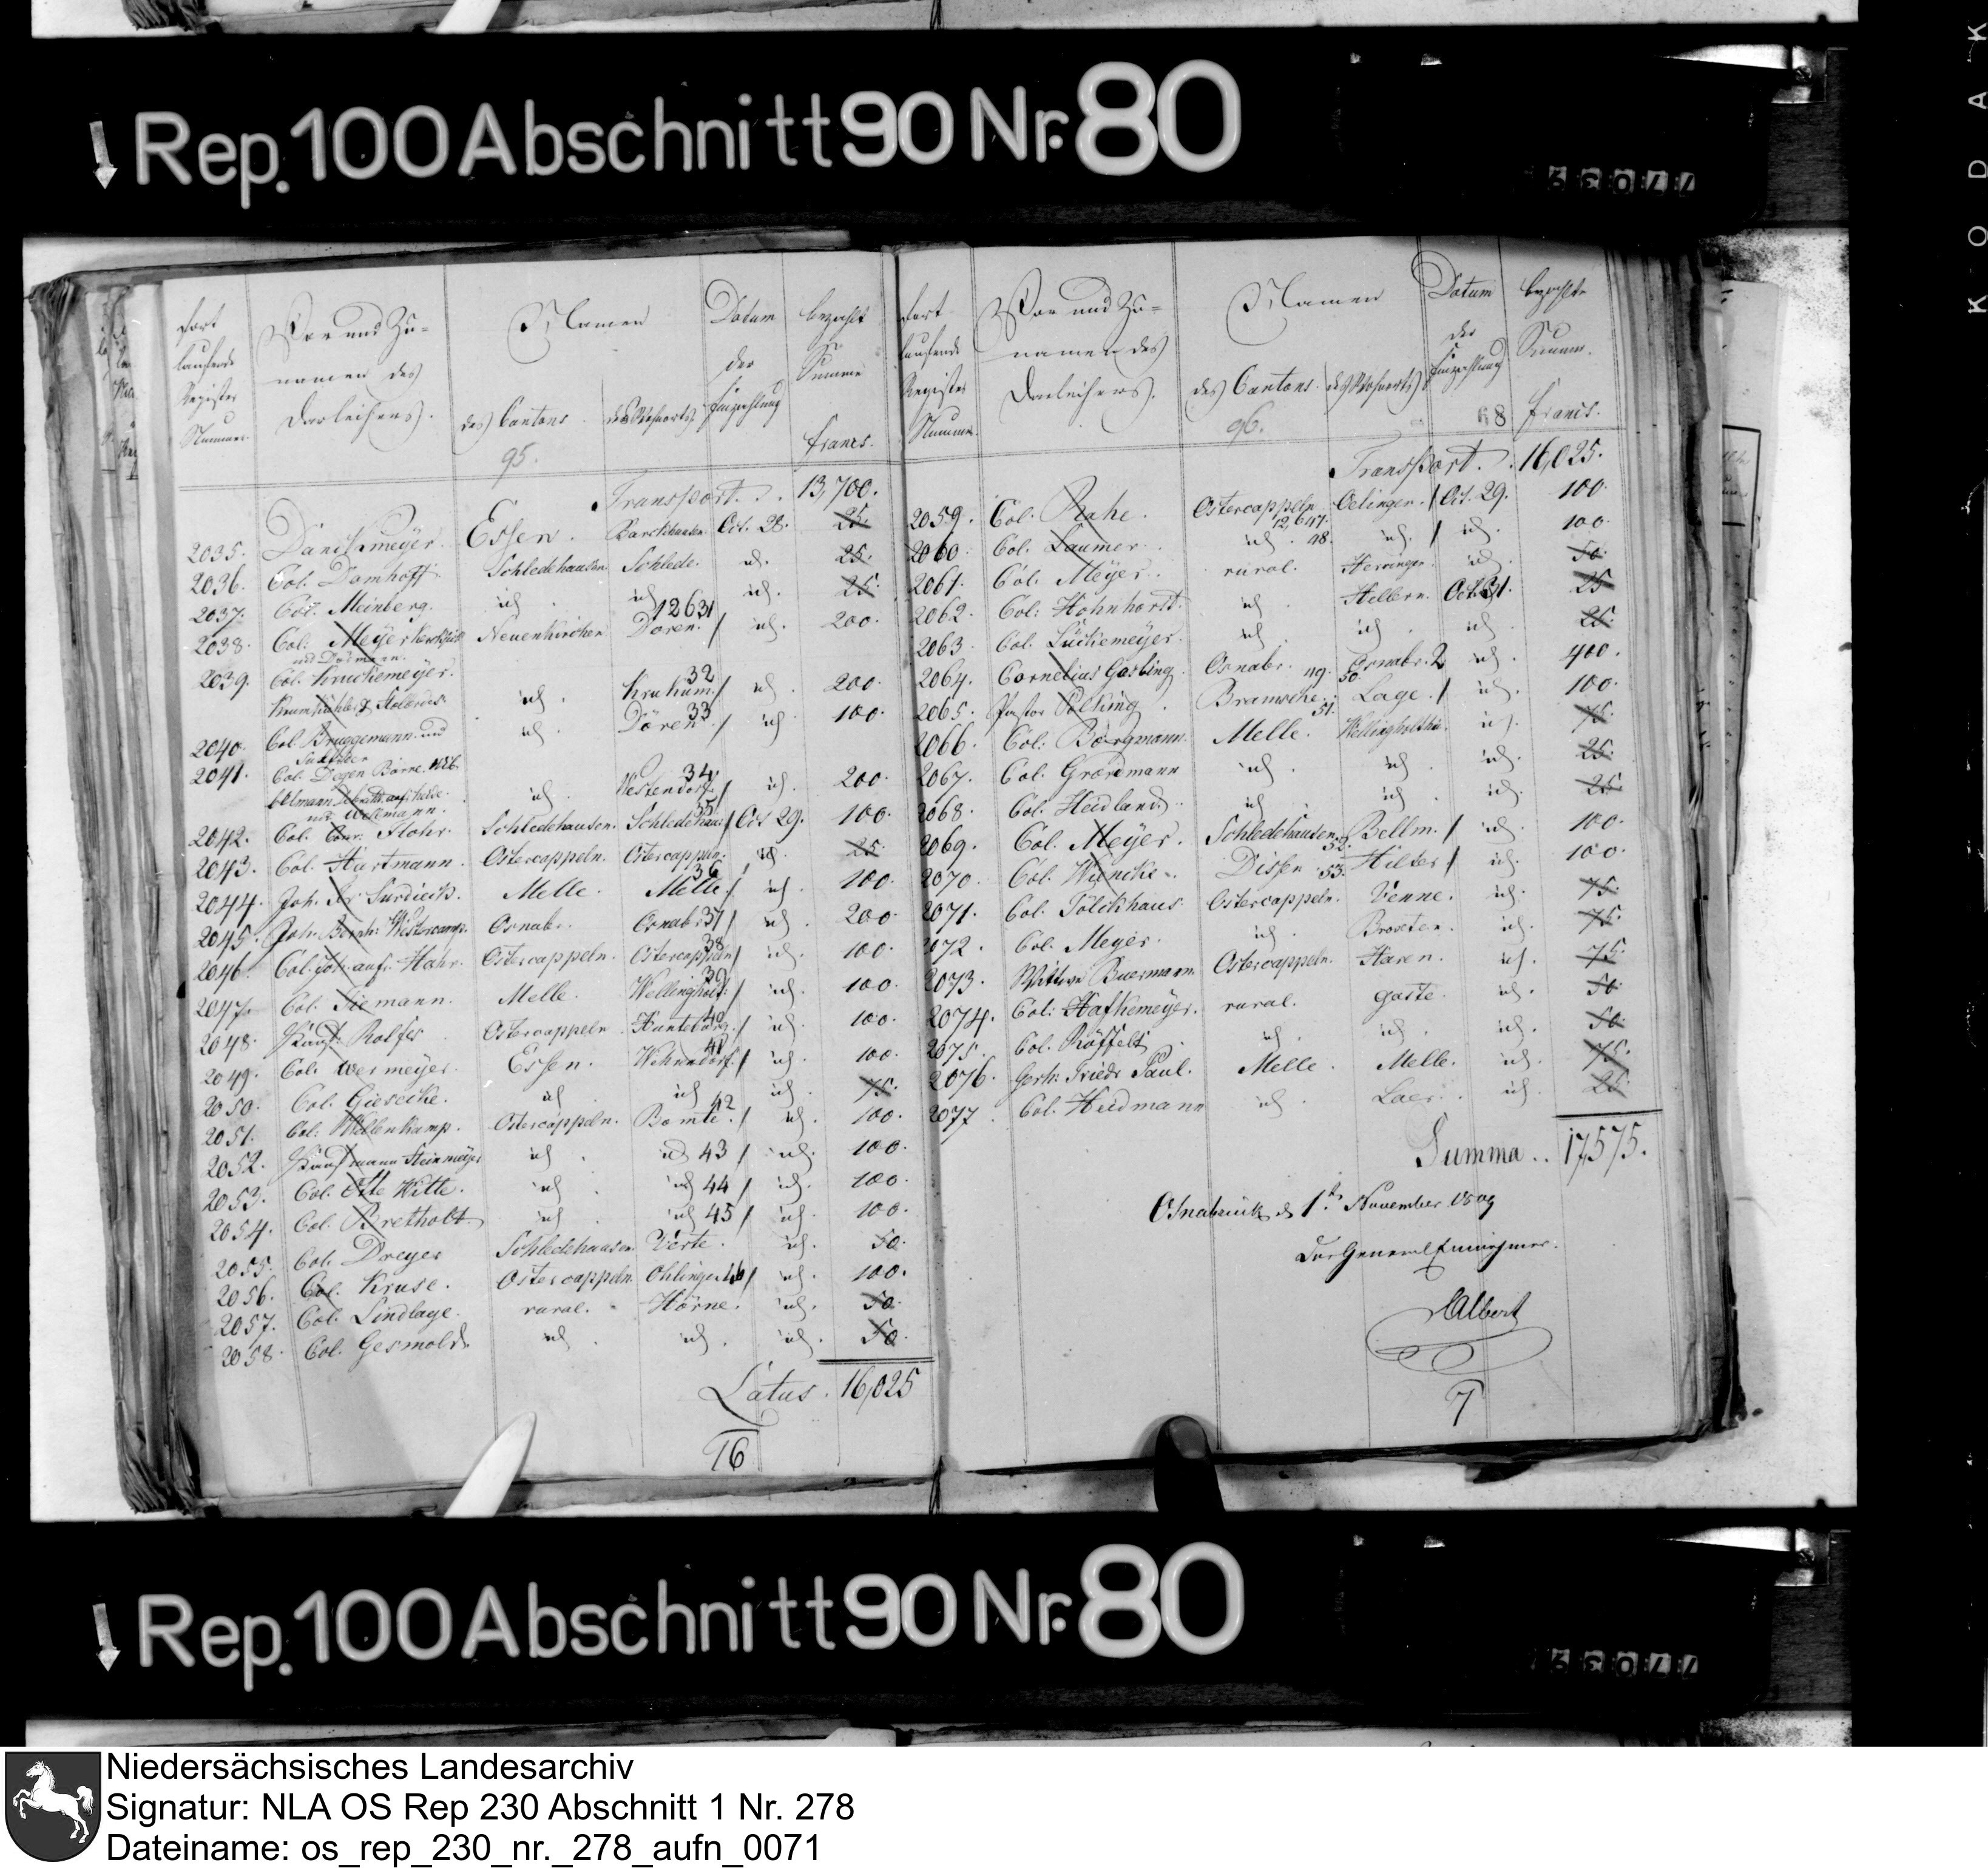 Rep. 100 Abschnitt 90 Nr. 80
KODAK
Fort laufende Register Nummer. Vor und Zu-namen des Darleihers. Namen des Cantons. des Wohnorts. Datum der Einzahlung bezahlt Summe francs.
95.
Transport. . 13,700.
2035. Essen. Oct. 28. 25.
2036. Col. Domhoff. Schledehausen. Schlede. id. 25.
2037. Col. Meinberg. id. id. id. 25.
12631
2038. Col. Neuenkirchen Dören. / id. 200.
2039. Col. Kruckemeyer.
id. Krukum. 32 / id. 200.
2040. Col. Bruggemann und
id. Dören. 33 / id. 100.
2041. Col.
id. Westendorf. 34 / id. 200.
2042. Col. Conr. Flohr. Schledehausen. Schledehaus. 35 / Oct 29. 100.
2043. Col. Hartmann. Ostercappeln. Ostercappeln. id. 25.
2044. Joh. Surdieck. Melle. Melle. 36 / id. 100.
2045. Joh. Westercamp. Osnabr. Osnabr. 37 / id. 200.
2046. Col. Ostercappeln. Ostercappeln 38 / id. 100.
2047. Col. Tiemann. Melle. 39 / id. 100.
2048. Rolfes Ostercappeln. Hunteburg. 40 / id. 100.
2049. Col. Wermeyer. Essen. Wehrendorf. 41 / id. 100.
2050. Col. Giesecke. id. id. id. 75.
2051. Col. Wellenkamp. Ostercappeln. Bomte. 42 / id. 100.
2052. Kaufmann Steinmeyer id. id. 43 / id. 100.
2053. Col. Otte Witte. id. id. 44 / id. 100.
2054. Col. Bretholt id. id. 45 / id. 100.
2055. Col. Dreyer Schledehausen. Verte. id. 50.
2056. Col. Kruse. Ostercappeln. Ohlingen 46 / id. 100.
2057. Col. Lindlage. rural. Hörne. id. 50.
2058. Col. Gesmold. id. id. id. 50.
Latus. 16,025
76
Fort laufende Register Nummer. Vor und Zu-namen des Darleihers. Namen des Cantons. des Wohnorts. Datum der Einzahlung bezahlte Summe. francs.
96.
Transport. . 16,025.
2059. Col. Rahe. Ostercappeln. 12,647. Oelingen. / Oct. 29. 100.
2060. Col. Laumer. id. 48. id. / id. 100.
2061. Col. Meyer. rural. id. 50.
2062. Col. Hohnhorst. id. Hellern. Oct. 31. 25
2063. Col. Lückemeyer. id. id. id. 25.
2064. Cornelius Gosling Osnabr. 49. 50. Osnabr. 2 id. 400.
2065. Pastor Bramsche. 51. Lage. / id. 100.
2066. Col. Borgmann. Melle. id. 75.
2067. Col. id. id. id. 25.
2068. Col. Heidland. id. id. id. 25.
2069. Col. Meyer. Schledehausen. 52. Bellm. / id. 100.
2070. Col. Dissen 53. Hilter / id. 100.
2071. Col. Ostercappeln. Venne. id. 75.
2072. Col. Meyer. id. id. 75.
2073. Wittwe Buermann Ostercappeln. Haren. id. 75.
2074. Col. Hafkemeyer. rural. Gaste. id. 50.
2075. Col. Röffelt id. id. id. 50.
2076. Gerh. Friedr Paul. Melle. Melle. id. 75.
2077. Col. Heidmann id. Laer. id. 25.
Summa . . 17,575.
Osnabrück d 1ten November 1809
Der General Einnehmer.
Albert
7
Rep. 100 Abschnitt 90 Nr. 80
Niedersächsisches Landesarchiv
Signatur: NLA OS Rep 230 Abschnitt 1 Nr. 278
Dateiname: os_rep_230_nr._278_aufn_0071